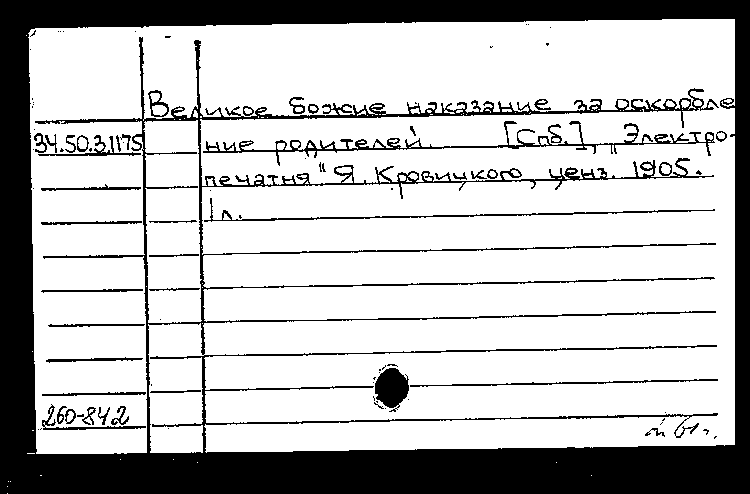 Великое божие наказание за оскорбле
34.50.3.1175 ние родителей. [Спб.], „Электро-
печатня" Я. Кровицкого, ценз. 1905.
1 л.
260-84.2